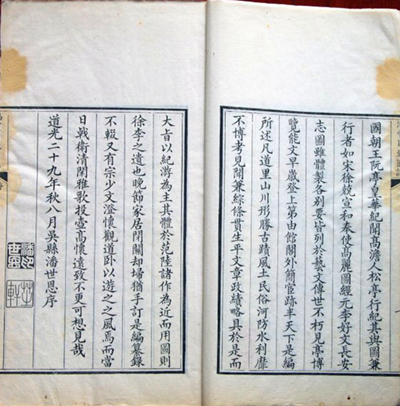 國朝王阮亭皇華紀聞高澹人松亭行紀其與圖兼
行者如宋徐兢宣和奉使高麗圖經元李好文長安
志圖雖體製各別要皆列於藝文傳世不朽見亭博
覽能文早歲登上第由館閣外簡宦跡半天下是編
所述凡道里山川形勝古蹟風土民俗河防水利靡
不博考見聞兼綜條貫生平文章政績略具於是而
大旨以紀游為主其體於范陸諸作為近而用圖則
徐李之遺也晚節家居閉閣却埽猶手訂是編纂錄
不輟又有宗少文澄懷觀道卧以遊之之風焉而當
日戟衛清閒雅歌投壺高懷遠致不更可想見哉
道光二十九年秋八月吳縣潘世恩序